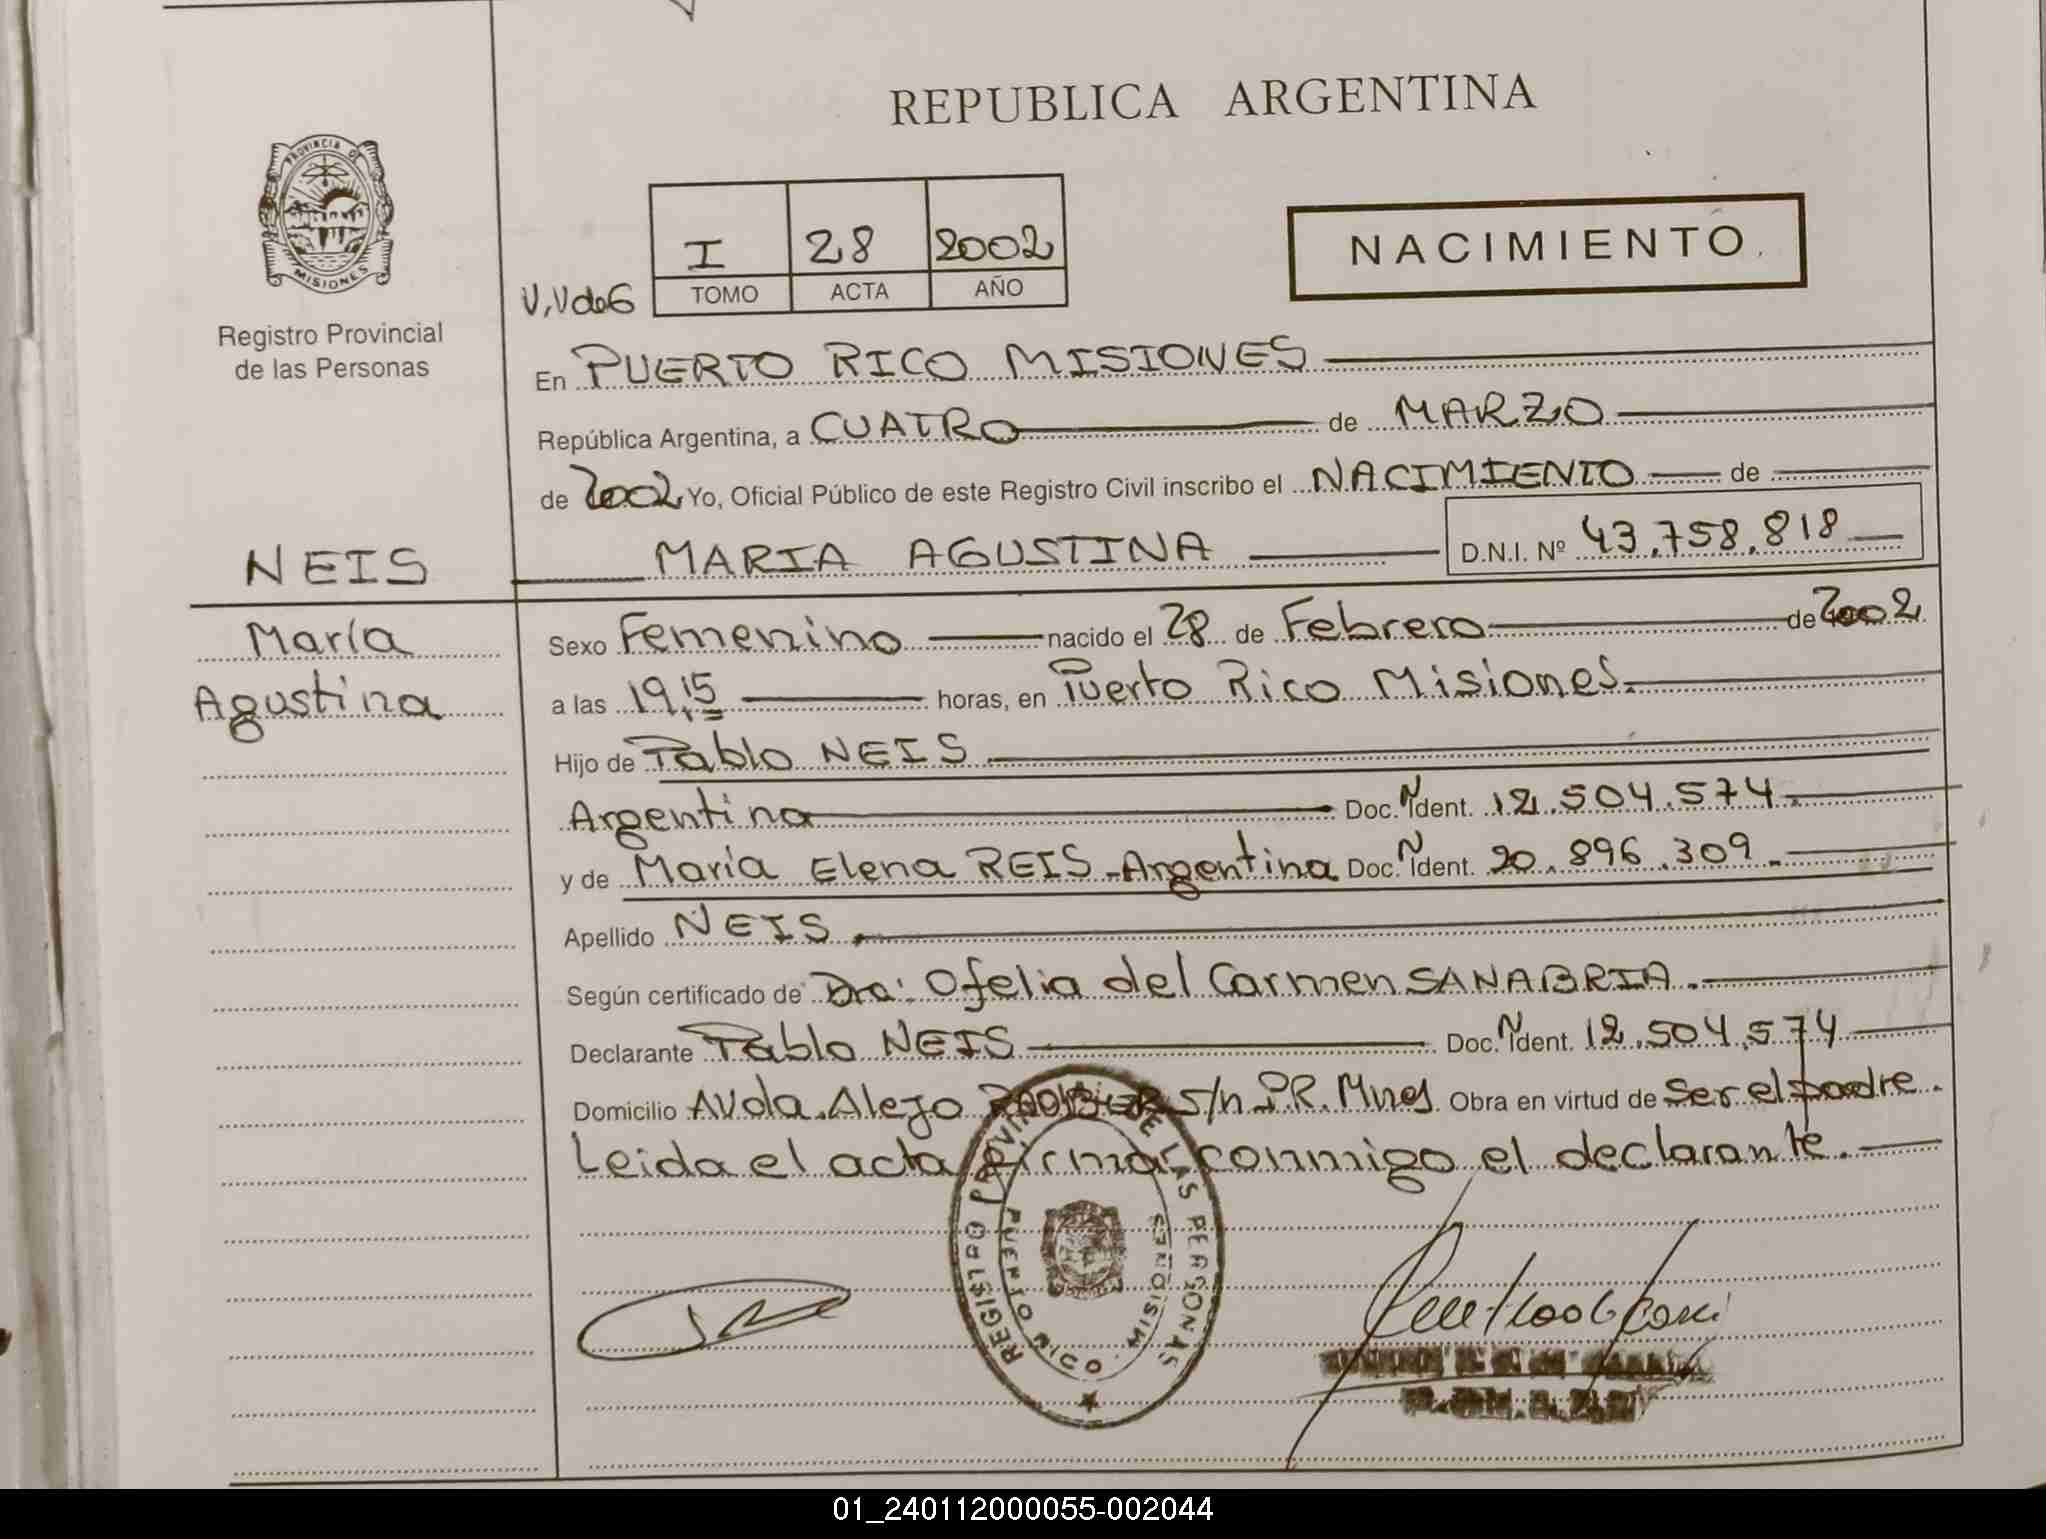 REPUBLICA ARGENTINA
PROVINCIA DE MISIONES
Registro Provincial
de las Personas
I 28 2002
V,VdeG TOMO ACTA AÑO
NACIMIENTO
En PUERTO RICO MISIONES
República Argentina, a CUATRO de MARZO
de 2002 Yo, Oficial Público de este Registro Civil inscribo el NACIMIENTO de
MARIA AGUSTINA D.N.I. Nº 43.758.818
NEIS
María
Agustina
Sexo Femenino nacido el 28 de Febrero de 2002
a las 19,15 horas, en Puerto Rico Misiones.
Hijo de Pablo NEIS
Argentino Doc. N Ident. 12.504.574.
y de María Elena REIS-Argentina Doc. N Ident. 20.896.309.
Apellido NEIS.
Según certificado de Dra. Ofelia del Carmen SANABRIA.
Declarante Pablo NEIS Doc. N Ident. 12.504.574
Domicilio Avda. Alejo s/n P.R. Mnes Obra en virtud de Ser el padre.
Leida el acta firma conmigo el declarante.
REGISTRO PROVINCIAL DE LAS PERSONAS
PUERTO RICO - MISIONES
01_240112000055-002044